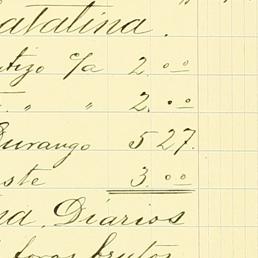 atalina.
utizo c/a 2.00
" " 2.00
Durango 527.
ste 3.00
na Diarios